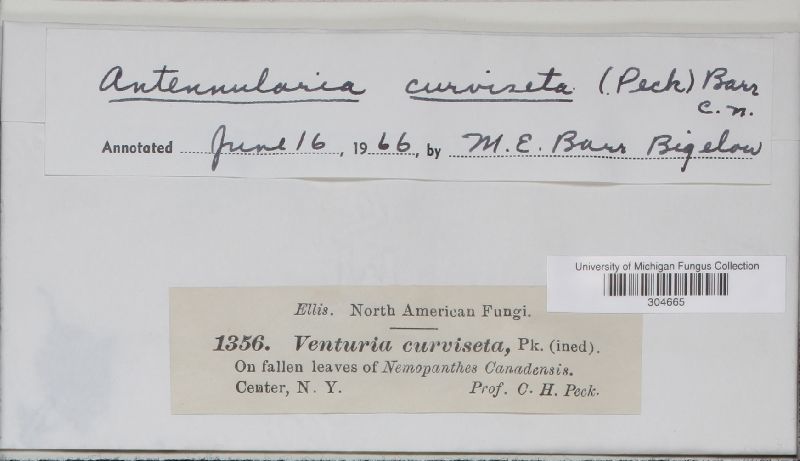 Antennularia curviseta (Peck) Barr
c.n.
Annotated June 16, 1966, by M. E. Barr Bigelow
University of Michigan Fungus Collection
304665
Ellis. North American Fungi.
1356. Venturia curviseta, Pk. (ined).
On fallen leaves of Nemopanthes Canadensis.
Center, N. Y. Prof. C. H. Peck.